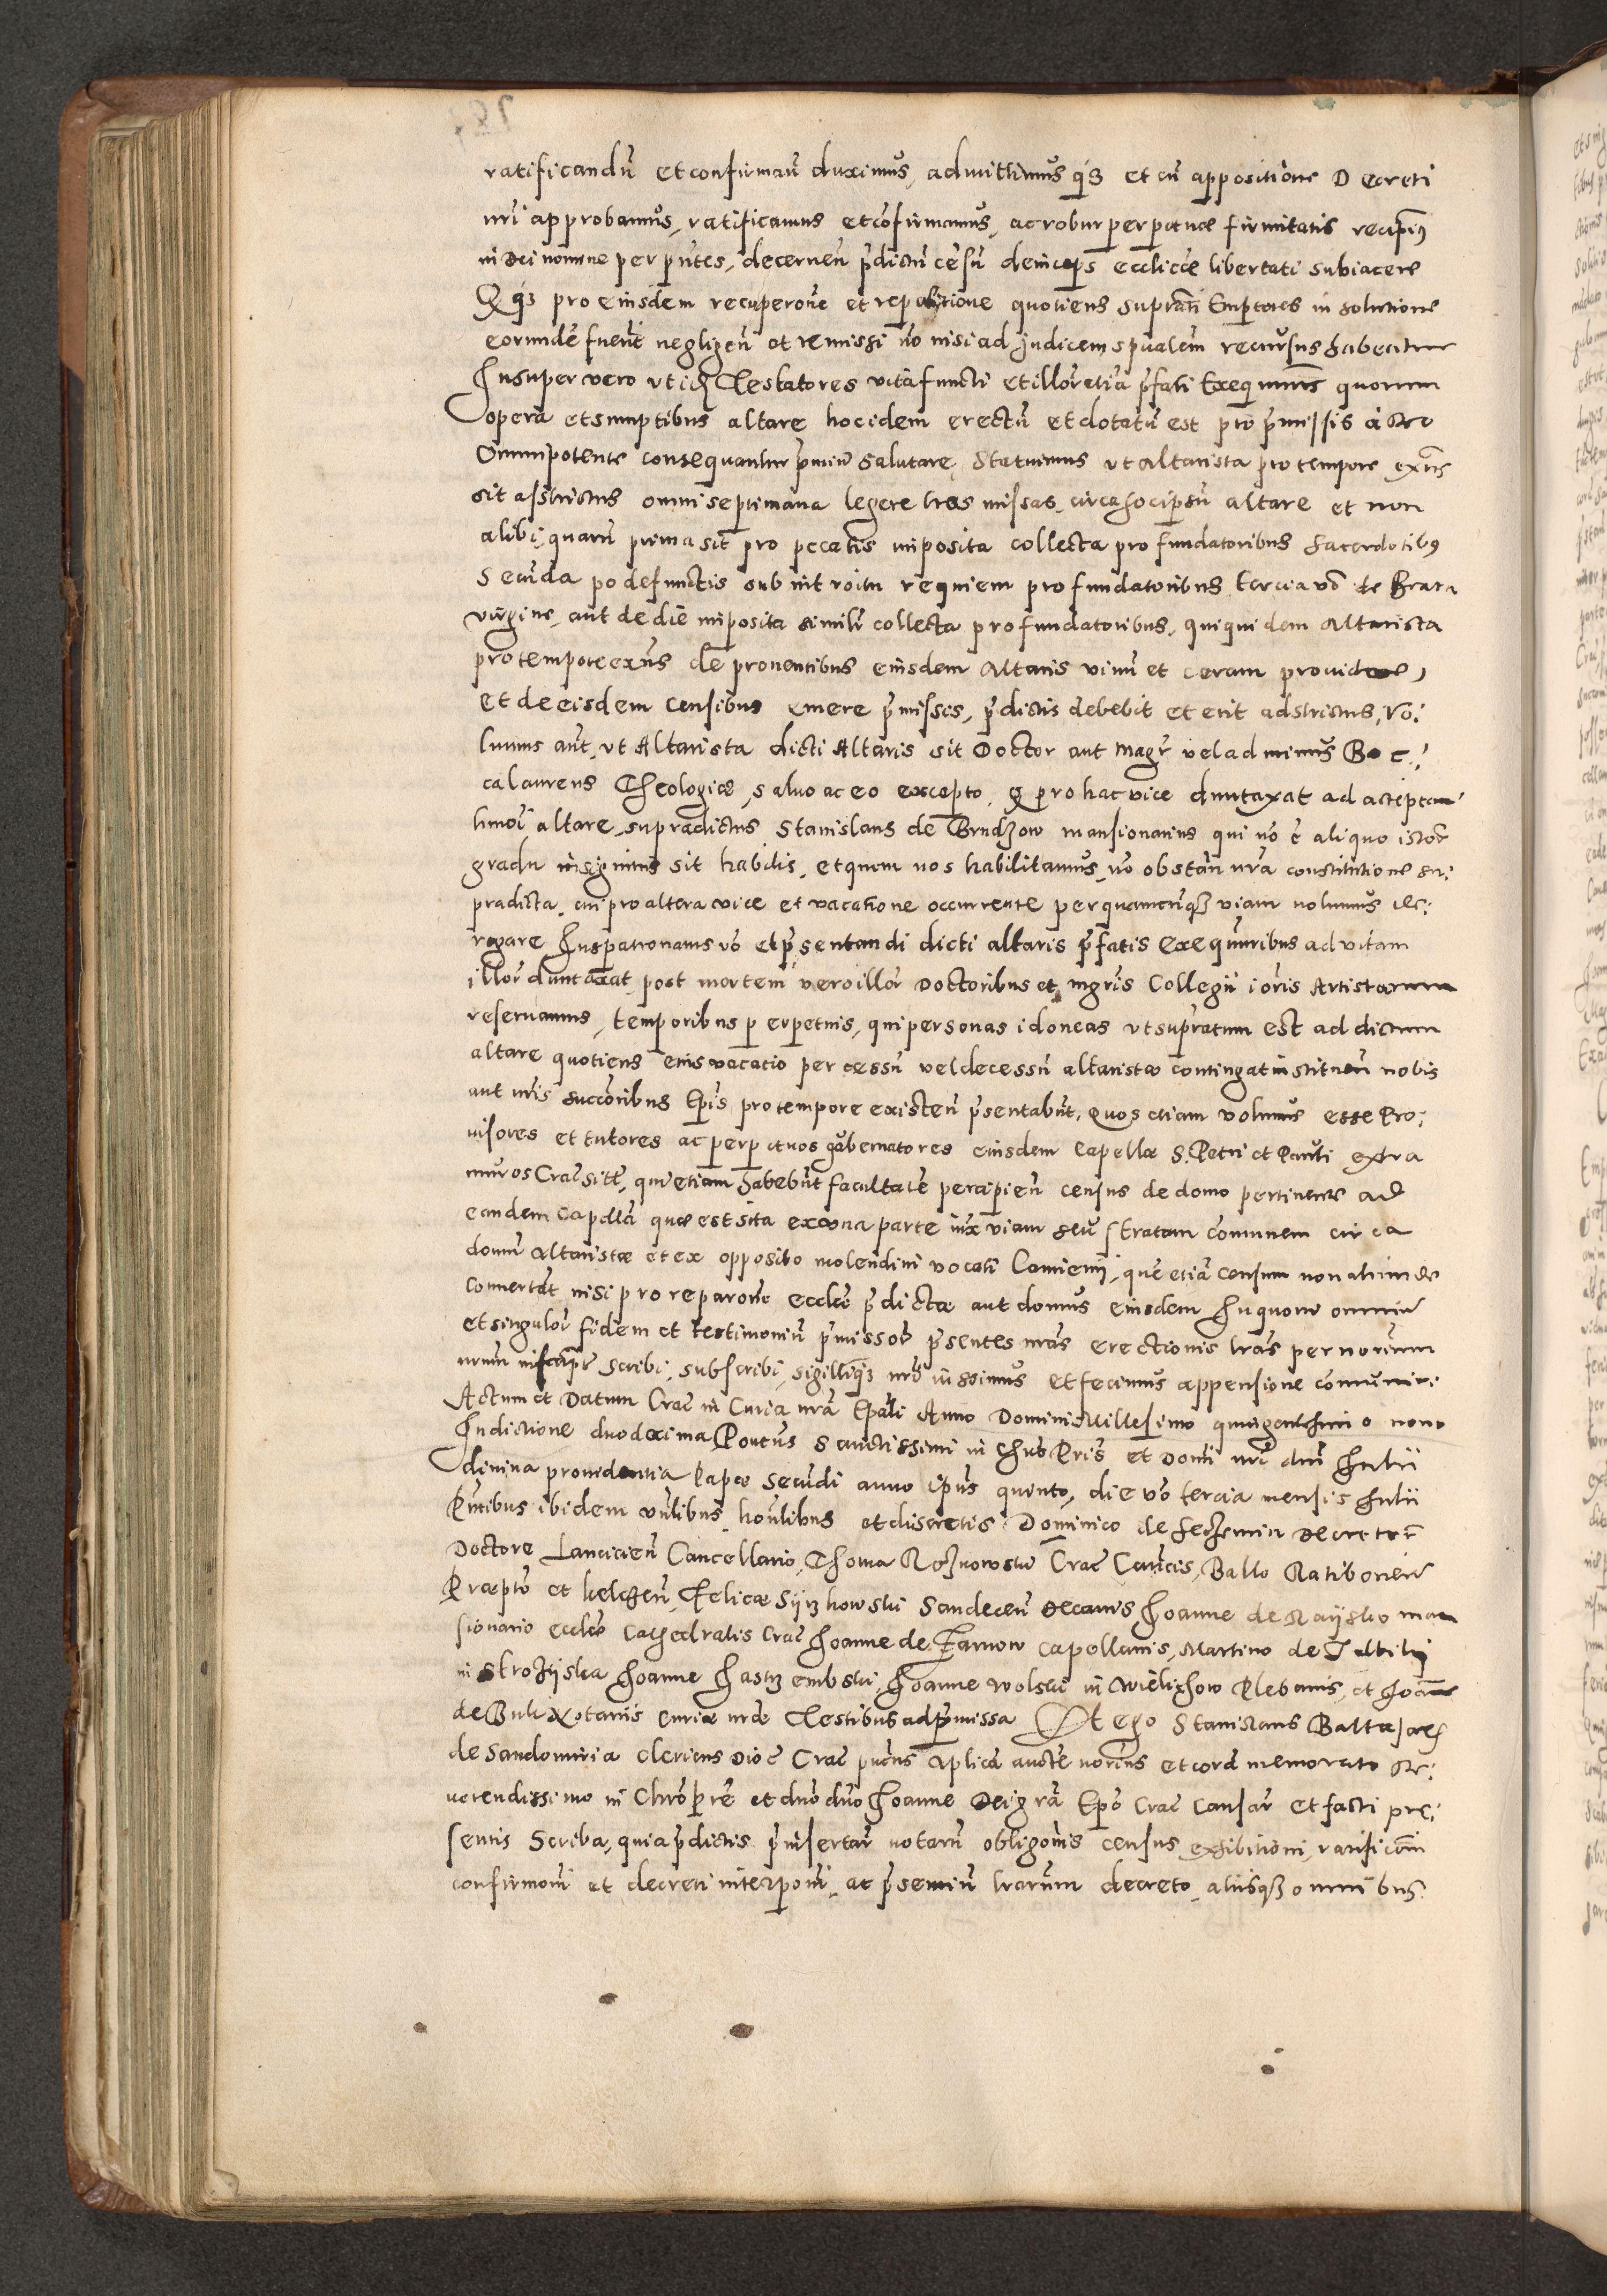 ratificandū et confirmaň duximus, admittimus qz et cū appositione Decreti
nr̄i approbamus, ratificamus et cōfirmamus, ac robur perpetuæ firmitatis
in Dei nomine per pn̄tes, decernen̄ p̄dictū cēsū deinceps eccl̄icæ libertati subiacere
Qqz pro eiusdem recuperōne et repetitione quotiens supran̄ti Emptores in solutione
eorundē fuer̄it negligen̄ et remissi nō nisi ad Judicem spūalem recursus habeatur
Insuper vero ut iidē Testatores vita functi et illor̄ etiā p̄fati Exequutores quorum
opera et sumptibus altare hoc idem erectū et dotatū est pro p̄missis a Deo
Omnipotente consequantur p̄miū salutare, Statuimus ut altarista pro tempore exn̄s
sit astrictus omni septimana legere tres missas circa hoc ipsū altare et non
alibi, quarū prima sit pro pccatis imposita collecta pro fundatoribus sacerdotibus
Secūda po defunctis sub introitu requiem pro fundatoribus tercia vō de Beata
virgine, aut de die imposita simili collecta pro fundatoribus, qui quidem Altarista
pro tempore exn̄s de prouentibus eiusdem Altaris vinū et ceram prouidere,
Et de eisdem censibus emere p̄missis, p̄dictis debebit et erit adstrictus, Vo:
lumus aūt, ut Altarista dicti Altaris sit Doctor aut Magr̄ vel ad minus Bac:
calaureus Theologiæ, saluo ac eo excepto, q̄ pro hac vice duntaxat ad
hmōi altare, supradictus Stanislaus de Brudzow mansionarius qui nō ē aliquo istor̄
gradu insignitus sit habilis, et quem nos habilitamus, nō obstan̄ nr̄a constitutione su:
pradicta, cui pro altera vice et vacatione occurrente per quamcūqz viam nolumus de:
rogare Juspatronatus vō et p̄sentandi dicti altaris p̄fatis exequutoribus ad vitam
illor̄ duntaxat post mortem vero illor̄ Doctoribus et mgr̄is Collegii ior̄is Artistarum
reseruamus, temporibus perpetuis, qui personas idoneas ut supratum est ad dictum
altare quotiens eius vacatio per cessū vel decessū altaristæ contingat instituen̄ nobis
aut nr̄is successoribus Ep̄is pro tempore existen̄ p̄sentabūt, Quos etiam volumus esse Pro:
uisores et tutores ac perpetuos gubernatores eiusdem Capellæ S. Petri et Pauli extra
muros Crac̄ sitæ, qui etiam habebūt facultatē percipien̄ census de domo pertinente ad
eandem capellā quæ est sita ex una parte iux viam seu stratam cōmunem circa
domū altaristæ et ex opposito molendini vocati Camieni, quē etiā censum non aliunde
conuertāt nisi pro reparōne eccl̄iæ p̄dictæ aut domus eiusdem In quorū omniū
et singulor̄ fidem et testimoniū p̄missor̄ p̄sentes nr̄as erectionis lr̄as per norium
nrum infrascriptū scribi, subscribi, sigilliqz nr̄i iussimus et fecimus appensione cōmuniri
Actum et Datum Crac̄ in Curia nr̄a Ep̄ali Anno Domini Millesimo quingentesimo nono
Indictione duodecima Pontus Sanctissimi in Chr̄o Pr̄is et Domi nr̄i dnī Julii
diuina prouidentia Papæ Secūdi anno ip̄ius quinto, die vō tercia mensis Julii
Pn̄tibus ibidem vn̄libus, honlibus et discretis Dominico de Sechemin Decretor̄
Doctore Lancicien̄ Cancellario, Thoma Roznowski Crac̄ Can̄cis, Ballo Ratiborien̄
Præpto et kelczen̄, Felice Syizkowski Sandecen̄ Decanis Joanne de Rayssko man
sionario eccl̄iæ Cathedralis Crac̄ Joanne de Tarnow capellanis, Martino de
in Strozyska Joanne Jastzembski, Joanne Wolski in Wielichow Plebanis, et Joanne
de Buk Notariis Curiæ nr̄æ Testibus ad p̄missa Et ego Stanislaus Baltasaris
de Sandomiria Clericus Dioc̄ Crac̄ pucus aplica aucte norius et corā memorato Re:
uerendissimo in Chrō p̄re et dnō dnō Joanne Dei gr̄a Ep̄o Crac̄ Causar̄ et facti pre:
sentis Scriba, quia p̄dictis p̄insertar̄ notarū obligōnis census, exhibitioni, ratificōni
confirmōni et decreti interpōni, ac p̄sentiū lr̄arum decreto, aliisqz omnibus